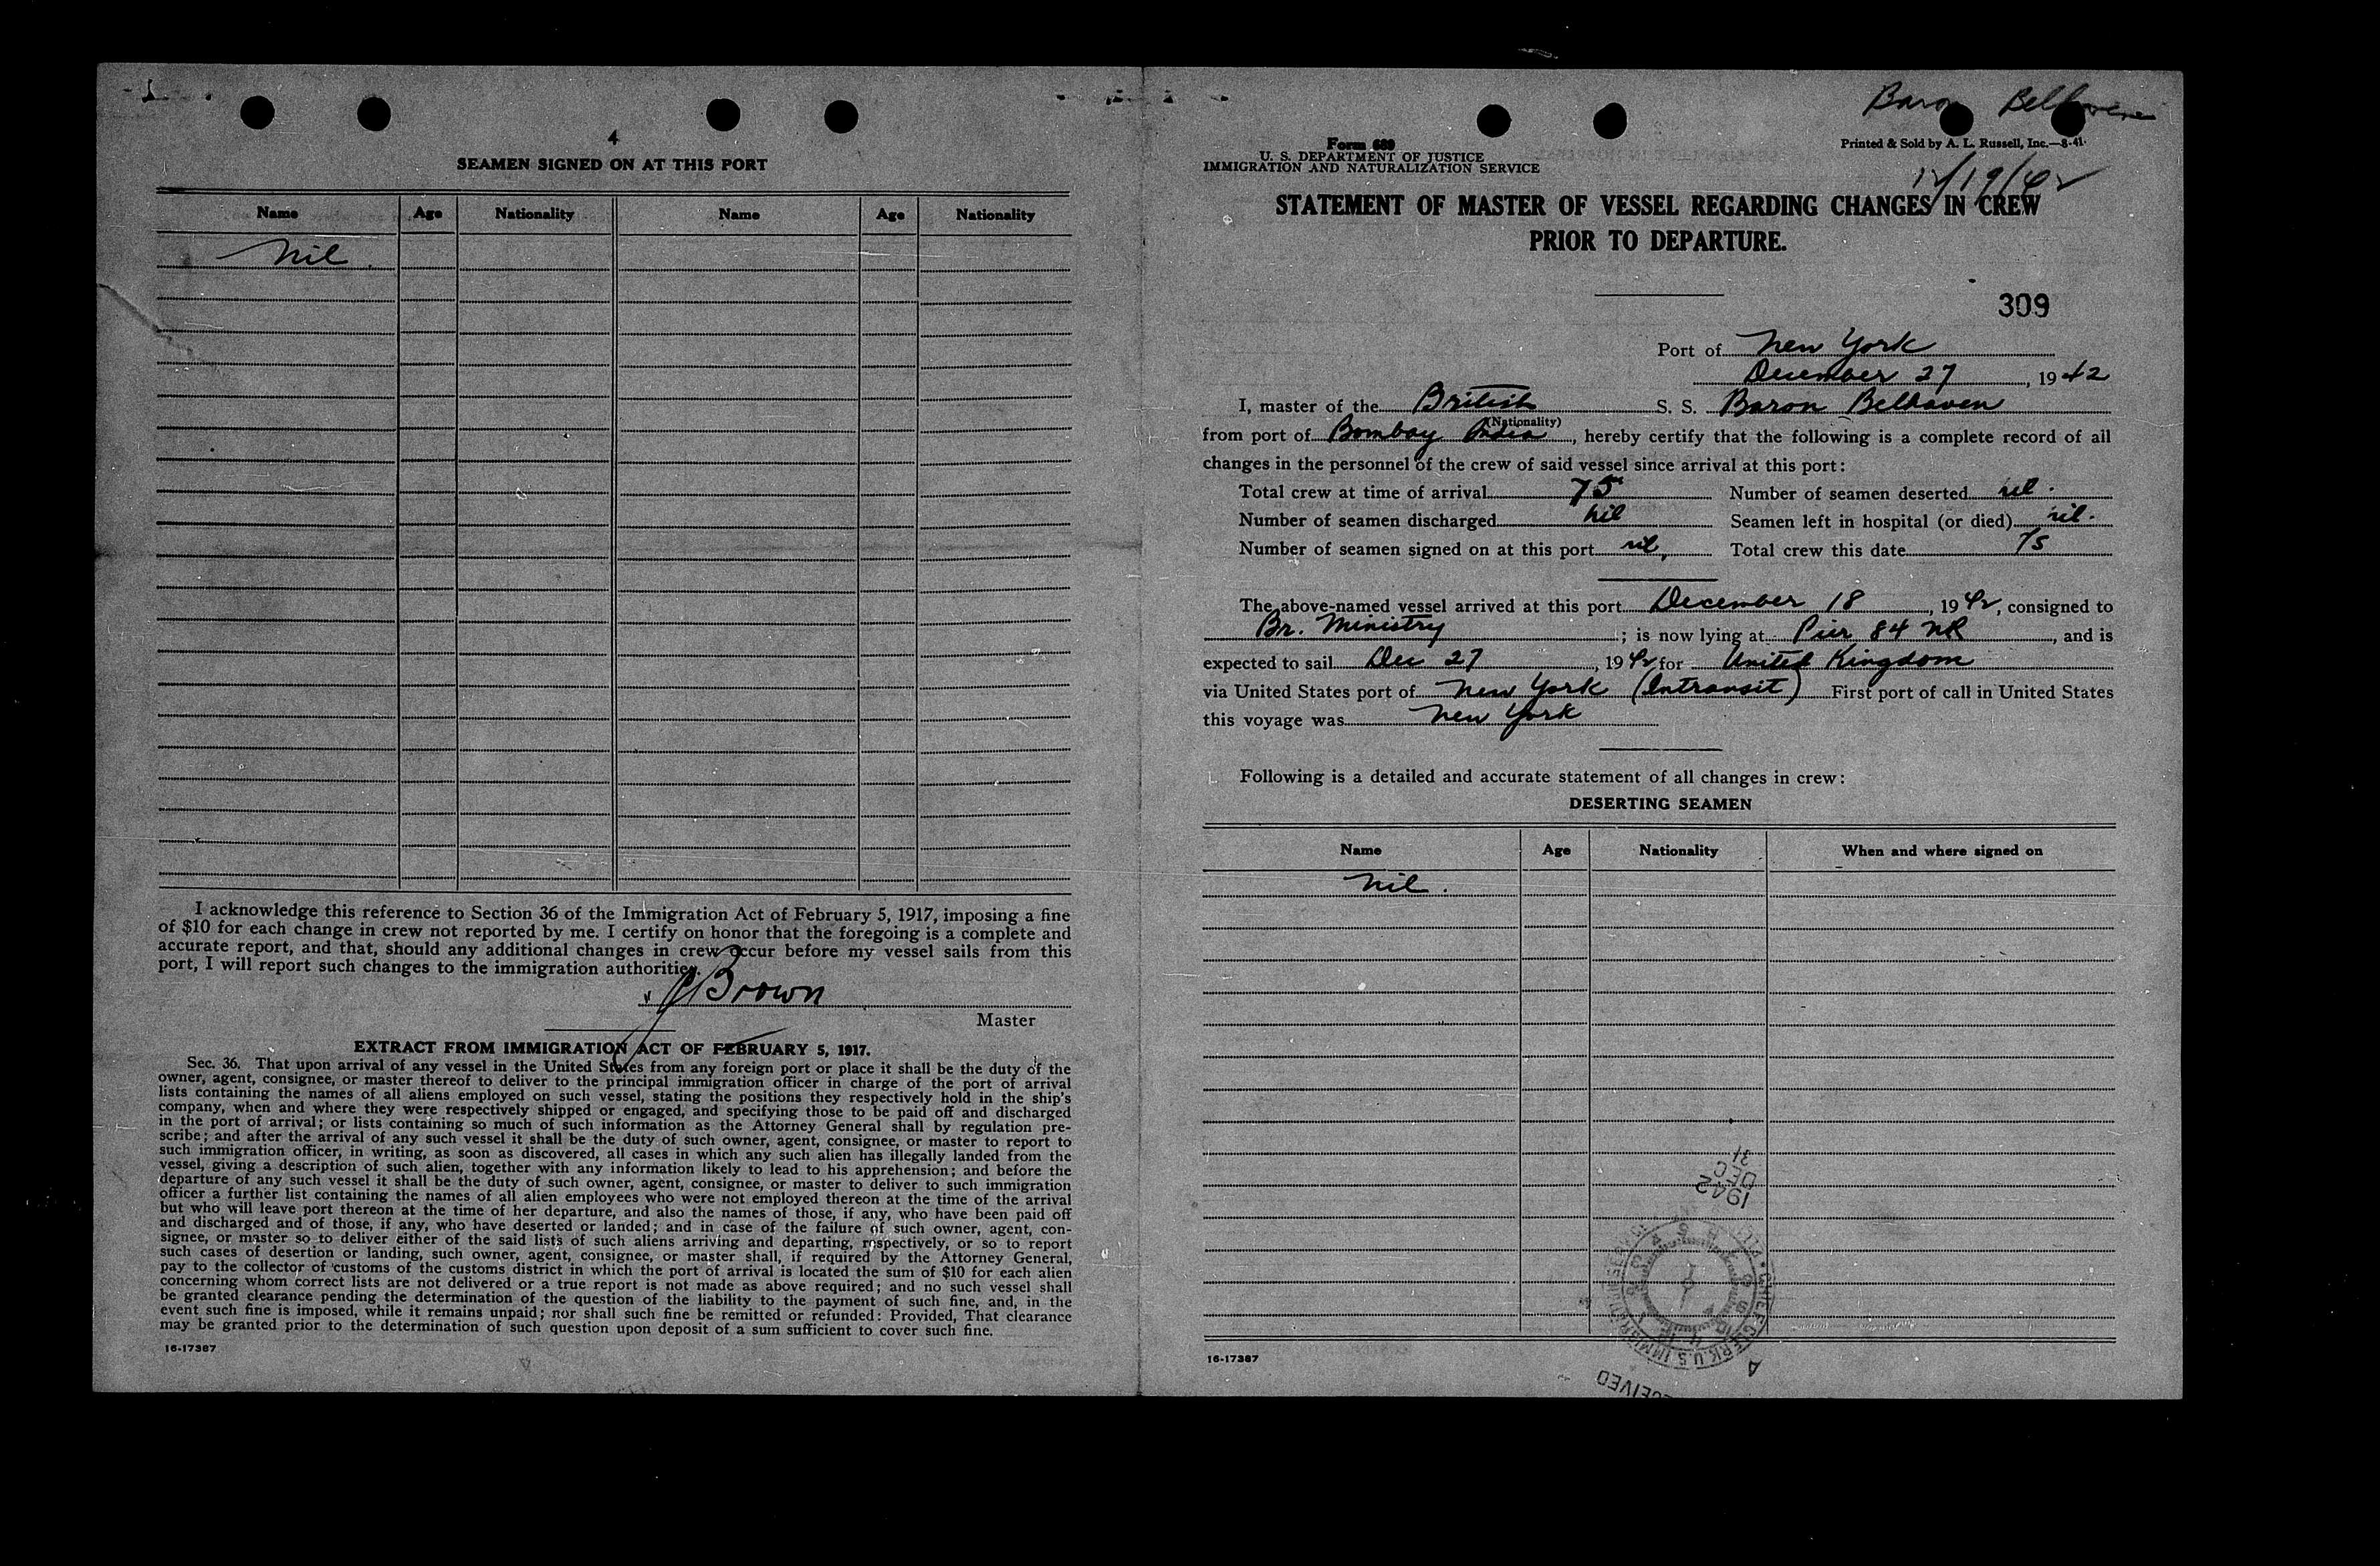 4
SEAMEN SIGNED ON AT THIS PORT
Name Age Nationality Name Age Nationality
Nil.
I acknowledge this reference to Section 36 of the Immigration Act of February 5, 1917, imposing a fine
of $10 for each change in crew not reported by me. I certify on honor that the foregoing is a complete and
accurate report, and that, should any additional changes in crew occur before my vessel sails from this
port, I will report such changes to the immigration authorities.
Brown
Master
EXTRACT FROM IMMIGRATION ACT OF FEBRUARY 5, 1917.
Sec. 36. That upon arrival of any vessel in the United States from any foreign port or place it shall be the duty of the
owner, agent, consignee, or master thereof to deliver to the principal immigration officer in charge of the port of arrival
lists containing the names of all aliens employed on such vessel, stating the positions they respectively hold in the ship's
company, when and where they were respectively shipped or engaged, and specifying those to be paid off and discharged
in the port of arrival; or lists containing so much of such information as the Attorney General shall by regulation pre-
scribe; and after the arrival of any such vessel it shall be the duty of such owner, agent, consignee, or master to report to
such immigration officer, in writing, as soon as discovered, all cases in which any such alien has illegally landed from the
vessel, giving a description of such alien, together with any information likely to lead to his apprehension; and before the
departure of any such vessel it shall be the duty of such owner, agent, consignee, or master to deliver to such immigration
officer a further list containing the names of all alien employees who were not employed thereon at the time of the arrival
but who will leave port thereon at the time of her departure, and also the names of those, if any, who have been paid off
and discharged and of those, if any, who have deserted or landed; and in case of the failure of such owner, agent, con-
signee, or master so to deliver either of the said lists of such aliens arriving and departing, respectively, or so to report
such cases of desertion or landing, such owner, agent, consignee, or master shall, if required by the Attorney General,
pay to the collector of customs of the customs district in which the port of arrival is located the sum of $10 for each alien
concerning whom correct lists are not delivered or a true report is not made as above required; and no such vessel shall
be granted clearance pending the determination of the question of the liability to the payment of such fine, and, in the
event such fine is imposed, while it remains unpaid; nor shall such fine be remitted or refunded: Provided, That clearance
may be granted prior to the determination of such question upon deposit of a sum sufficient to cover such fine.
16-17387
Baron Belhaven
Form 689
Printed & Sold by A. L. Russell, Inc.—8-41
U. S. DEPARTMENT OF JUSTICE
IMMIGRATION AND NATURALIZATION SERVICE
12/19/42
STATEMENT OF MASTER OF VESSEL REGARDING CHANGES IN CREW
PRIOR TO DEPARTURE.
309
Port of New York
December 27, 1942
I, master of the British S. S. Baron Belhaven
(Nationality)
from port of Bombay India, hereby certify that the following is a complete record of all
changes in the personnel of the crew of said vessel since arrival at this port:
Total crew at time of arrival 75 Number of seamen deserted nil.
Number of seamen discharged nil Seamen left in hospital (or died) nil.
Number of seamen signed on at this port nil, Total crew this date 75
The above-named vessel arrived at this port December 18, 1942, consigned to
Br. Ministry; is now lying at Pier 84 NR, and is
expected to sail Dec 27, 1942 for United Kingdom
via United States port of New York (Intransit) First port of call in United States
this voyage was New York
Following is a detailed and accurate statement of all changes in crew:
DESERTING SEAMEN
Name Age Nationality When and where signed on
Nil.
1942
DEC
31
16-17387